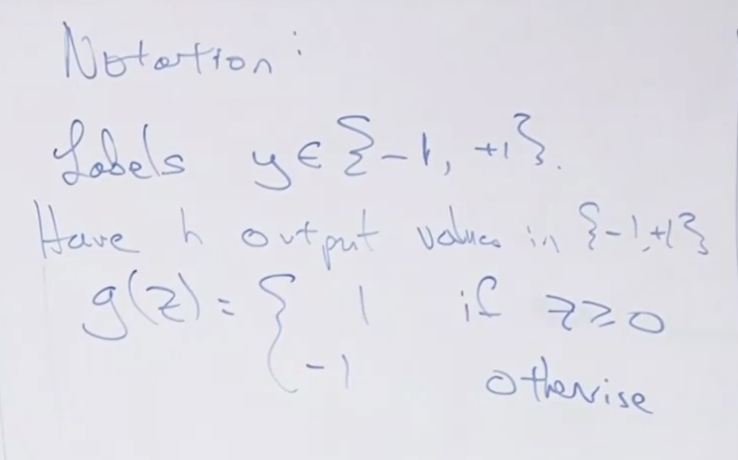 Notation:
Labels y ∈ {-1, +1}.
Have h output values in {-1,+1}
g(z) = { 1 if z ≥ 0
-1 otherwise